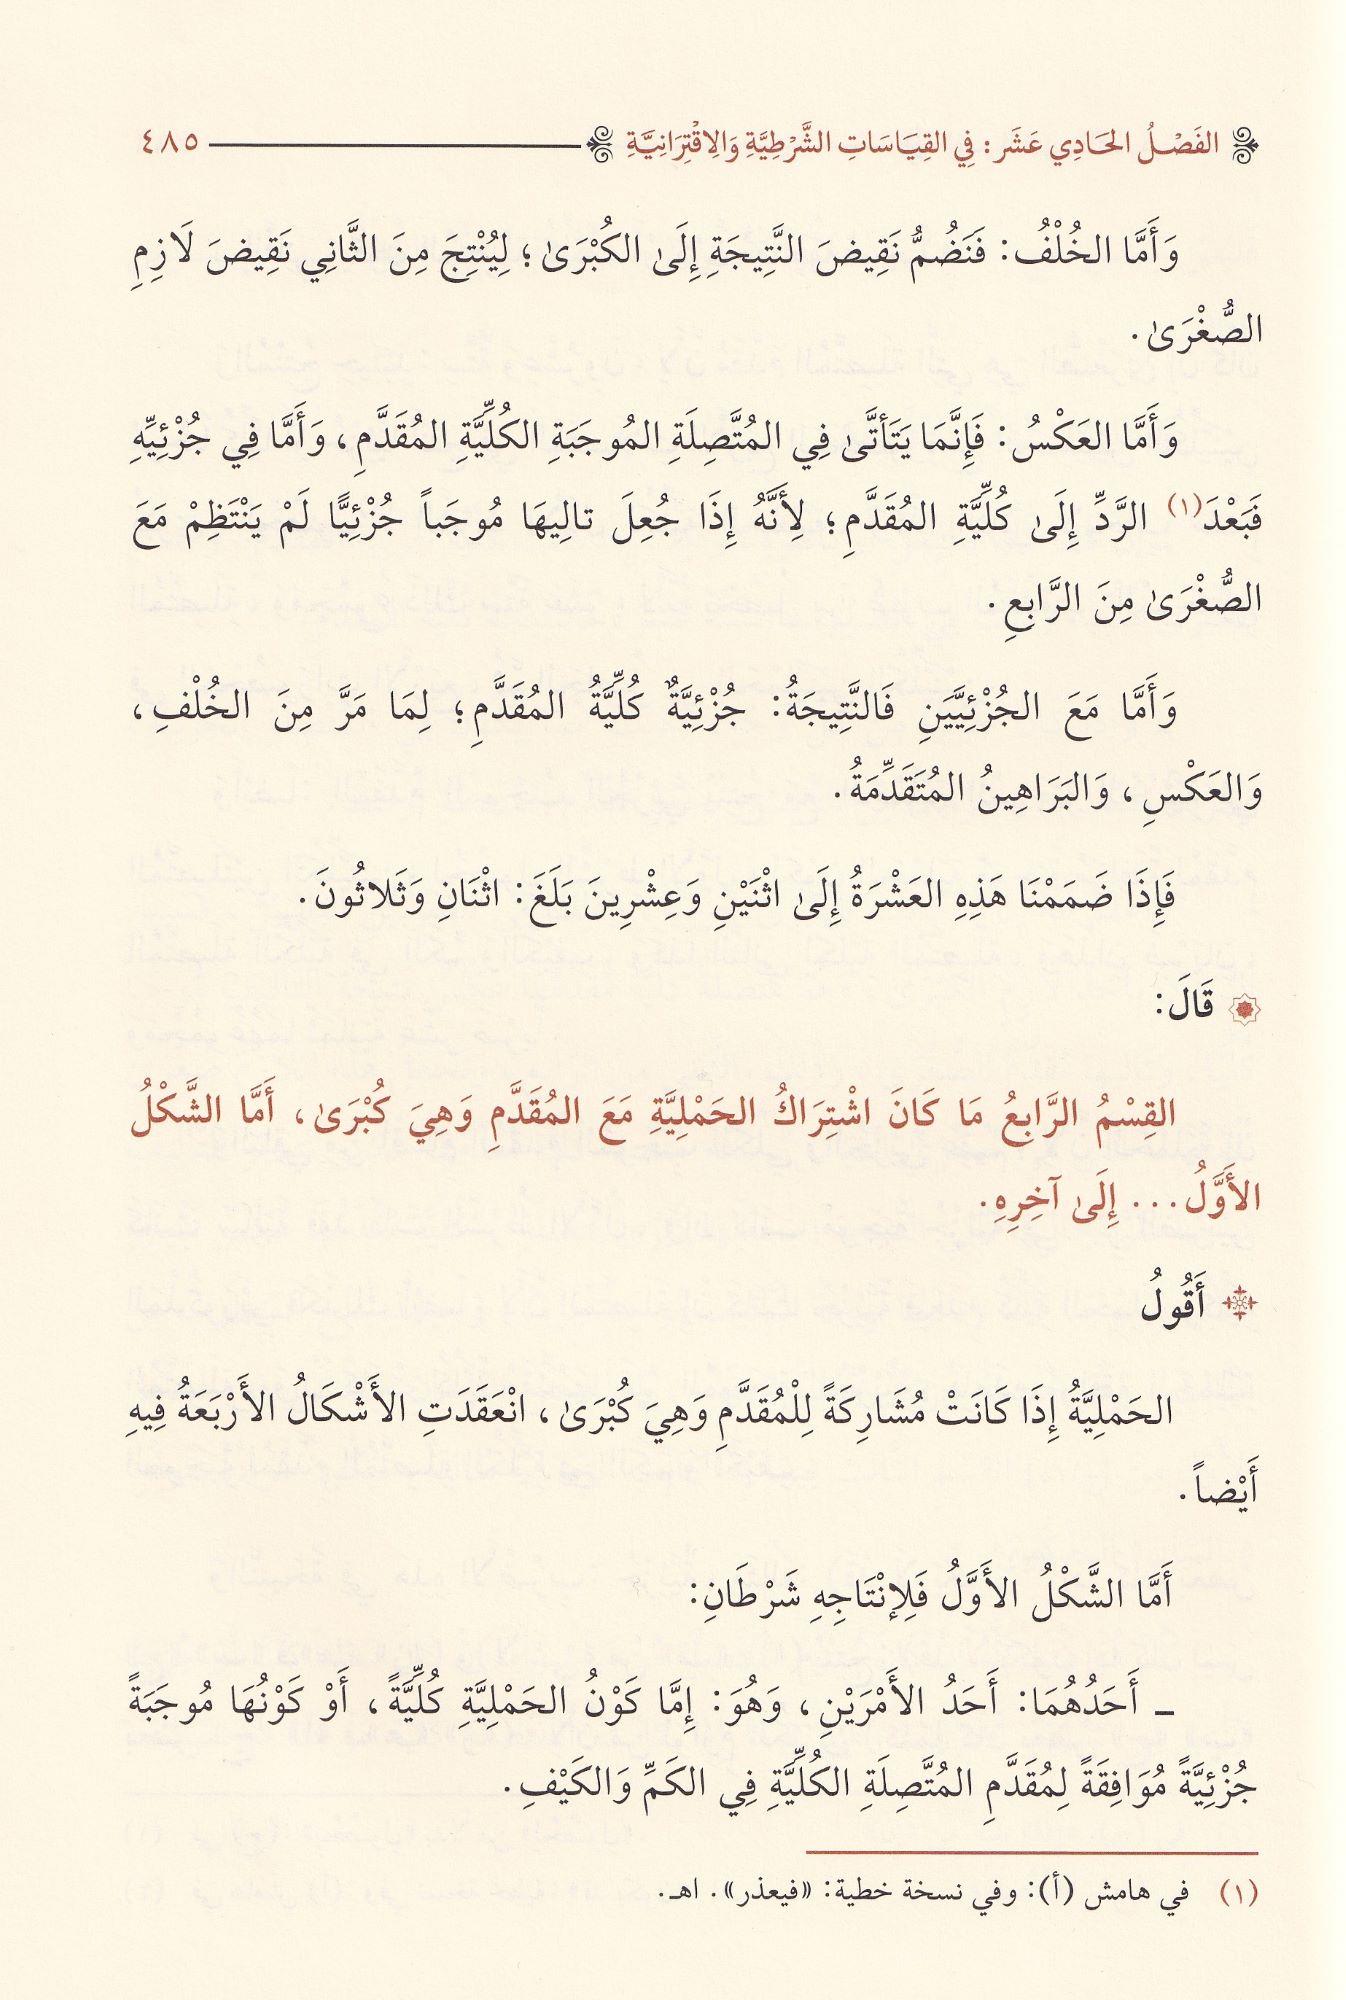 الفَصْلُ الحَادِي عَشَر: فِي القِيَاسَاتِ الشَّرْطِيَّةِ وَالِاقْتِرَانِيَّةِ ٤٨٥
وَأَمَّا الخُلْفُ: فَنَضُمُّ نَقِيضَ النَّتِيجَةِ إِلَىٰ الكُبْرَىٰ؛ لِيُنْتِجَ مِنَ الثَّانِي نَقِيضَ لَازِمِ
الصُّغْرَىٰ.
وَأَمَّا العَكْسُ: فَإِنَّمَا يَتَأَتَّىٰ فِي المُتَّصِلَةِ المُوجَبَةِ الكُلِّيَّةِ المُقَدَّمِ، وَأَمَّا فِي جُزْئِيِّهِ
فَبَعْدَ(١) الرَّدِّ إِلَىٰ كُلِّيَّةِ المُقَدَّمِ؛ لِأَنَّهُ إِذَا جُعِلَ تالِيهَا مُوجَباً جُزْئِيًّا لَمْ يَنْتَظِمْ مَعَ
الصُّغْرَىٰ مِنَ الرَّابِعِ.
وَأَمَّا مَعَ الجُزْئِيَّيَنِ فَالنَّتِيجَةُ: جُزْئِيَّةٌ كُلِّيَّةُ المُقَدَّمِ؛ لِمَا مَرَّ مِنَ الخُلْفِ،
وَالعَكْسِ، وَالبَرَاهِينُ المُتَقَدِّمَةُ.
فَإِذَا ضَمَمْنَا هَذِهِ العَشْرَةُ إِلَىٰ اثْنَيْنِ وَعِشْرِينَ بَلَغَ: اثْنَانِ وَثَلاثُونَ.
قَالَ:
القِسْمُ الرَّابِعُ مَا كَانَ اشْتِرَاكُ الحَمْلِيَّةِ مَعَ المُقَدَّمِ وَهِيَ كُبْرَىٰ، أَمَّا الشَّكْلُ
الأَوَّلُ... إِلَىٰ آخِرِهِ.
أَقُولُ
الحَمْلِيَّةُ إِذَا كَانَتْ مُشَارِكَةً لِلْمُقَدَّمِ وَهِيَ كُبْرَىٰ، انْعَقَدَتِ الأَشْكَالُ الأَرْبَعَةُ فِيهِ
أَيْضاً.
أَمَّا الشَّكْلُ الأَوَّلُ فَلِإنْتَاجِهِ شَرْطَانِ:
ــ أَحَدُهُمَا: أَحَدُ الأَمْرَيْنِ، وَهُوَ: إِمَّا كَوْنُ الحَمْلِيَّةِ كُلِّيَّةً، أَوْ كَوْنُهَا مُوجَبَةً
جُزْئِيَّةً مُوَافِقَةً لِمُقَدَّمِ المُتَّصِلَةِ الكُلِّيَّةِ فِي الكَمِّ وَالكَيْفِ.
(١) في هامش (أ): وفي نسخة خطية: «فيعذر». اهـ.